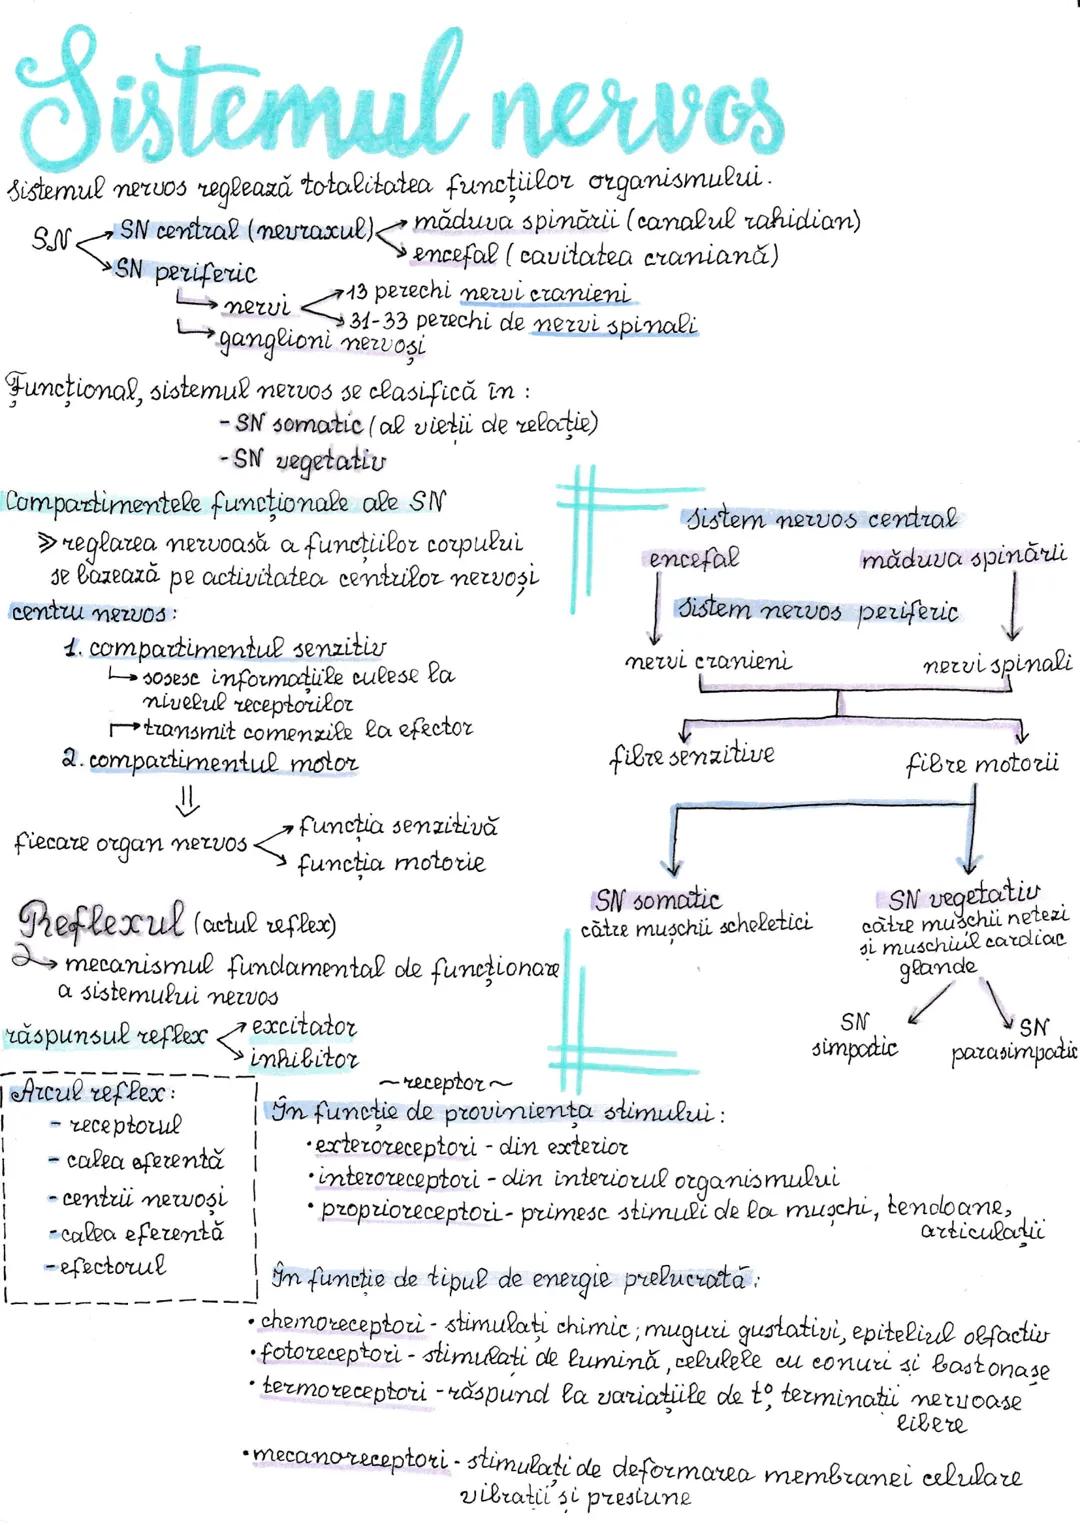 Sistemul nervos
Sistemul nervos reglează totalitatea funcțiilor organismului.
SN
SN central (nevraxul)
măduva spinării (canalul rahidian)
encefal (cavitatea craniană)
SN periferic
nervi
13 perechi nervi cranieni
31-33 perechi de nervi spinali
ganglioni nervoși
Funcțional, sistemul nervos se clasifică în :
- SN somatic (al vieții de relație)
- SN vegetativ
Compartimentele funcționale ale SN
reglarea nervoasă a funcțiilor corpului
se bazează pe activitatea centrilor nervoși
centru nervos:
1. compartimentul senzitiv
sosesc informațiile culese la
nivelul receptorilor
transmit comenzile la efector
2. compartimentul motor
fiecare organ nervos
funcția senzitivă
funcția motorie
Sistem nervos central
encefal
măduva spinării
Sistem nervos periferic
nervi cranieni
nervi spinali
fibre senzitive
fibre motorii
SN somatic
către mușchii scheletici
SN vegetativ
către mușchii netezi
și mușchiul cardiac
glande
SN
simpatic
SN
parasimpatic
Reflexul (actul reflex)
mecanismul fundamental de funcționare
a sistemului nervos
răspunsul reflex
excitator
inhibitor
Arcul reflex:
- receptorul
- calea aferentă
- centrii nervoși
- calea eferentă
- efectorul
~receptor~
În funcție de proviniența stimului:
• exteroreceptori - din exterior
• interoreceptori - din interiorul organismului
• proprioreceptori - primesc stimuli de la mușchi, tendoane,
articulații
În funcție de tipul de energie prelucrată:
• chemoreceptori - stimulați chimic ; muguri gustativi, epiteliul olfactiv
• fotoreceptori - stimulați de lumină, celulele cu conuri și bastonașe
• termoreceptori - răspund la variațiile de t°, terminații nervoase
libere
• mecanoreceptori - stimulați de deformarea membranei celulare
vibrații și presiune